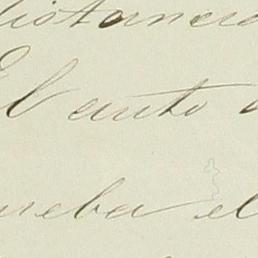 distancia
El auto
ueba el